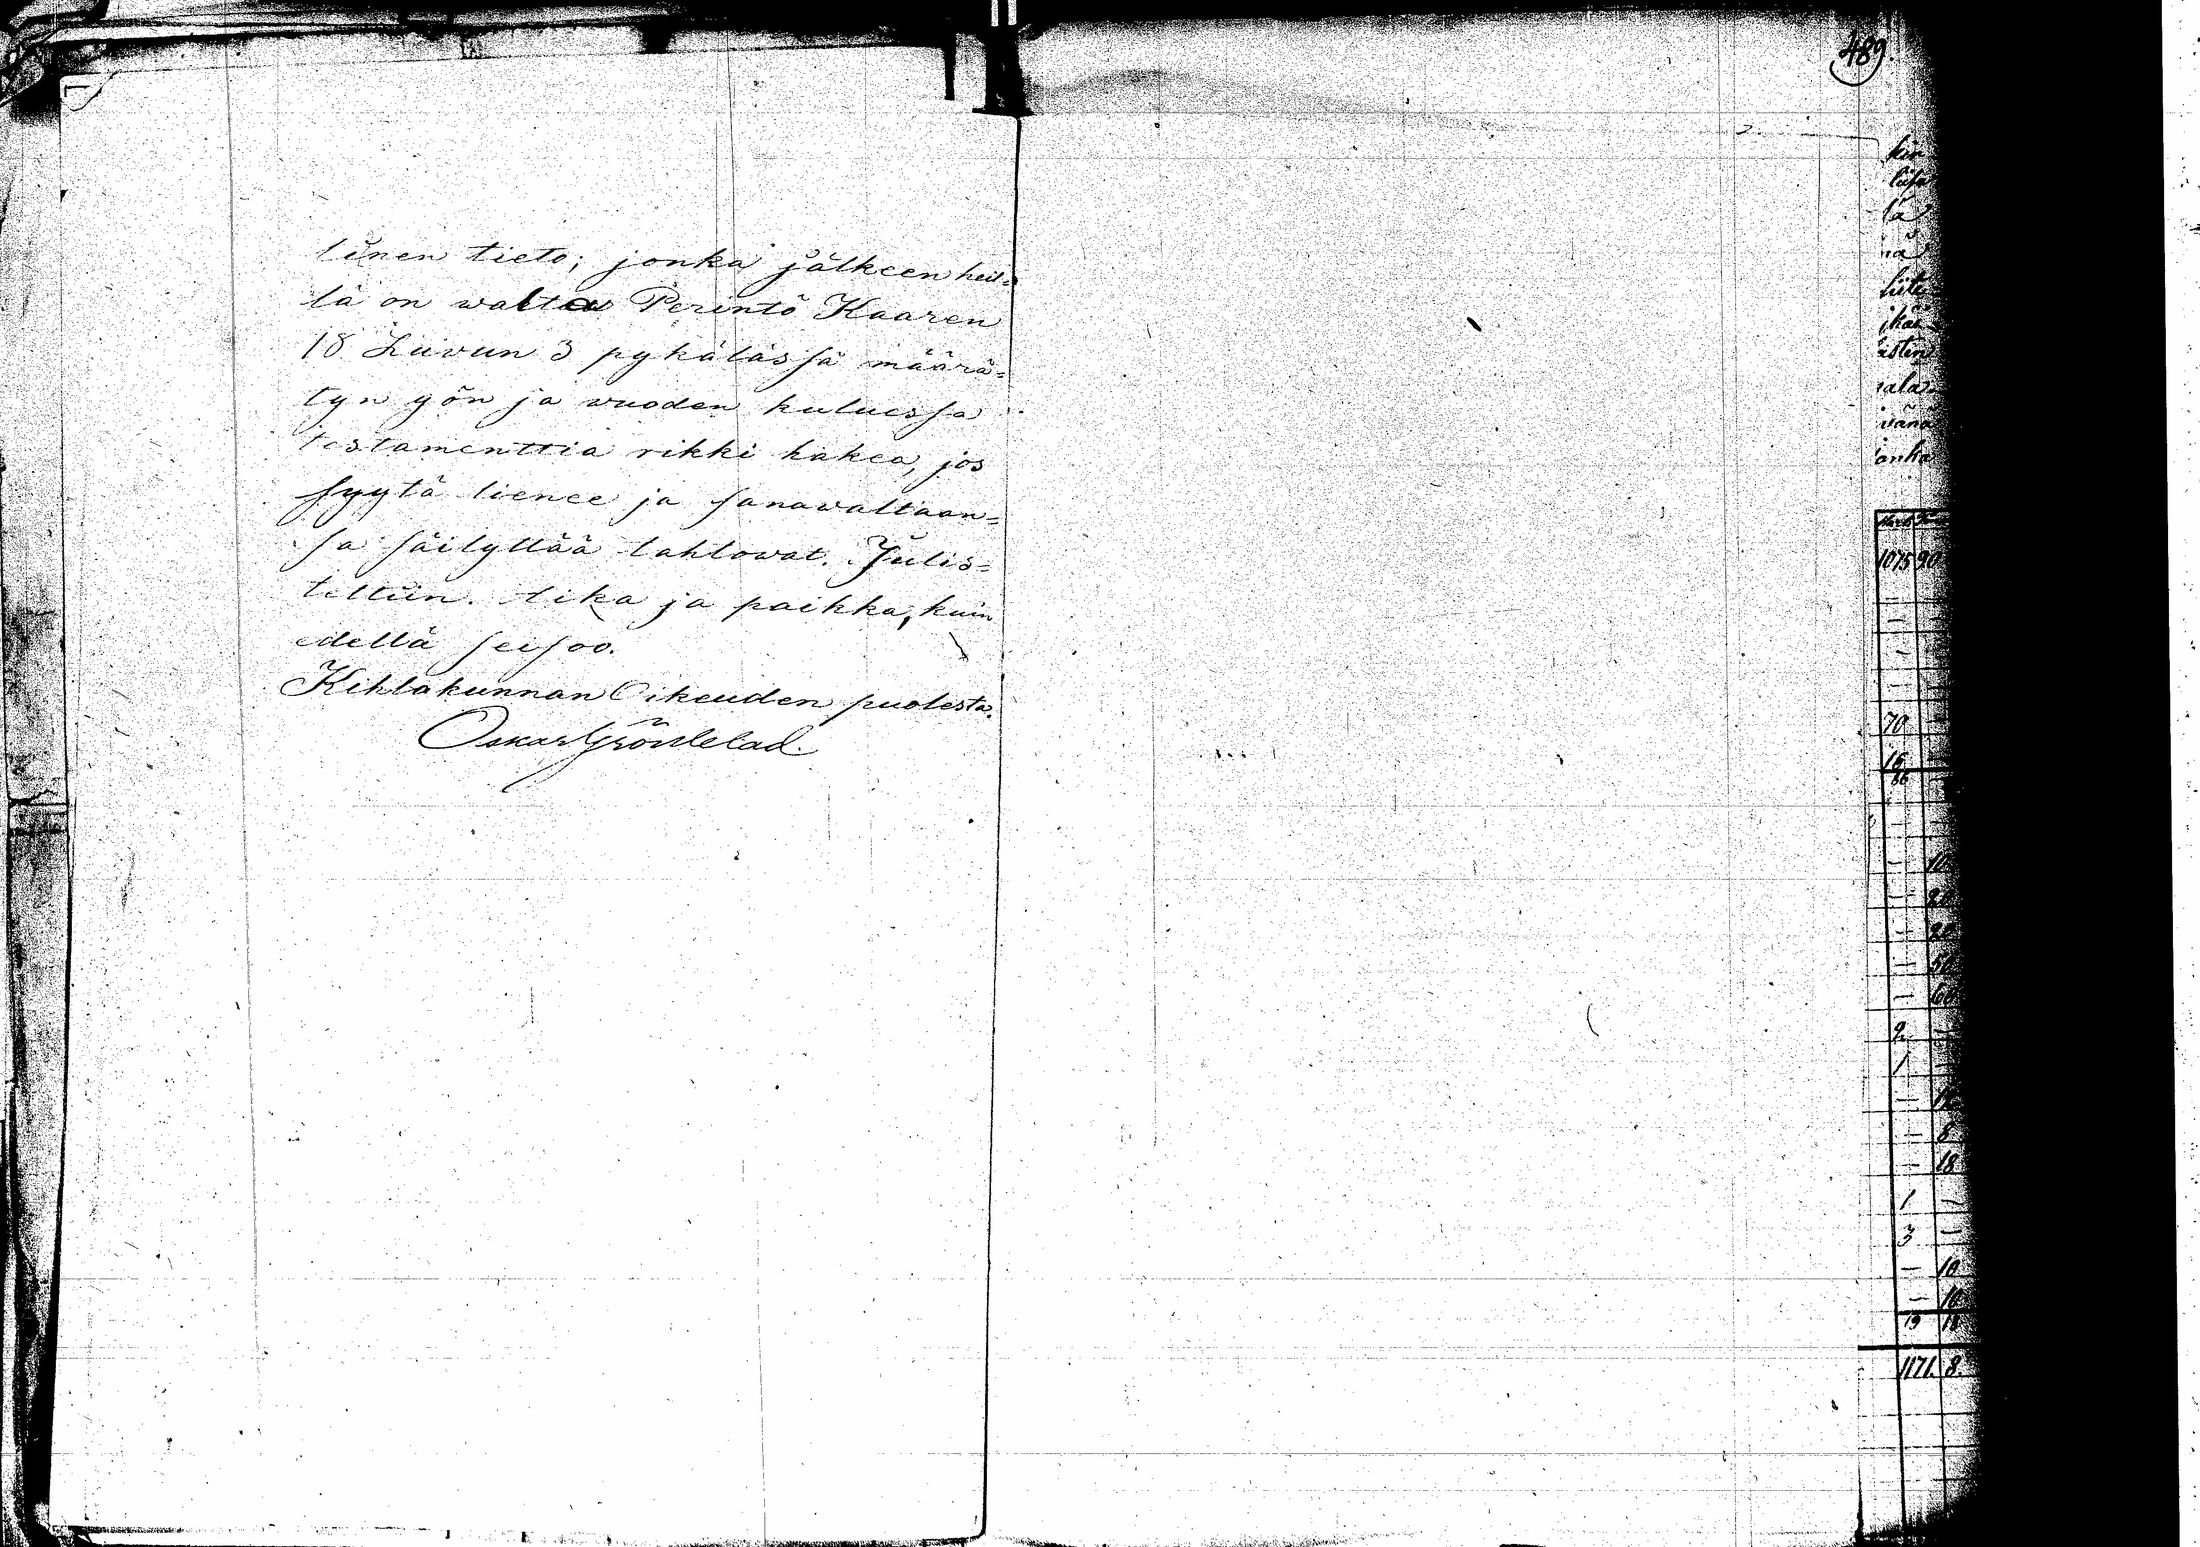 linen tieto; jonka jälkeen heil=
lä on waltaa Perintö Kaaren
18 Luvun 3 pykälässä määrä=
tyn yön ja vuoden kuluessa
testamenttia rikki hakea, jos
syytä lienee ja sanawaltaan=
sa säilyttää tahtowat. Julis=
tettiin. Aika ja paikka, kuin
edellä seisoo.
Kihlakunnan Oikeuden puolesta.
Oskar Gröndelad.
489.
kin
lä
nä
isten
vänä
1075 90
70
15
86
10
20
20
50
60
2
1
12
8
18
1
3
10
10
19 18
1171. 8.